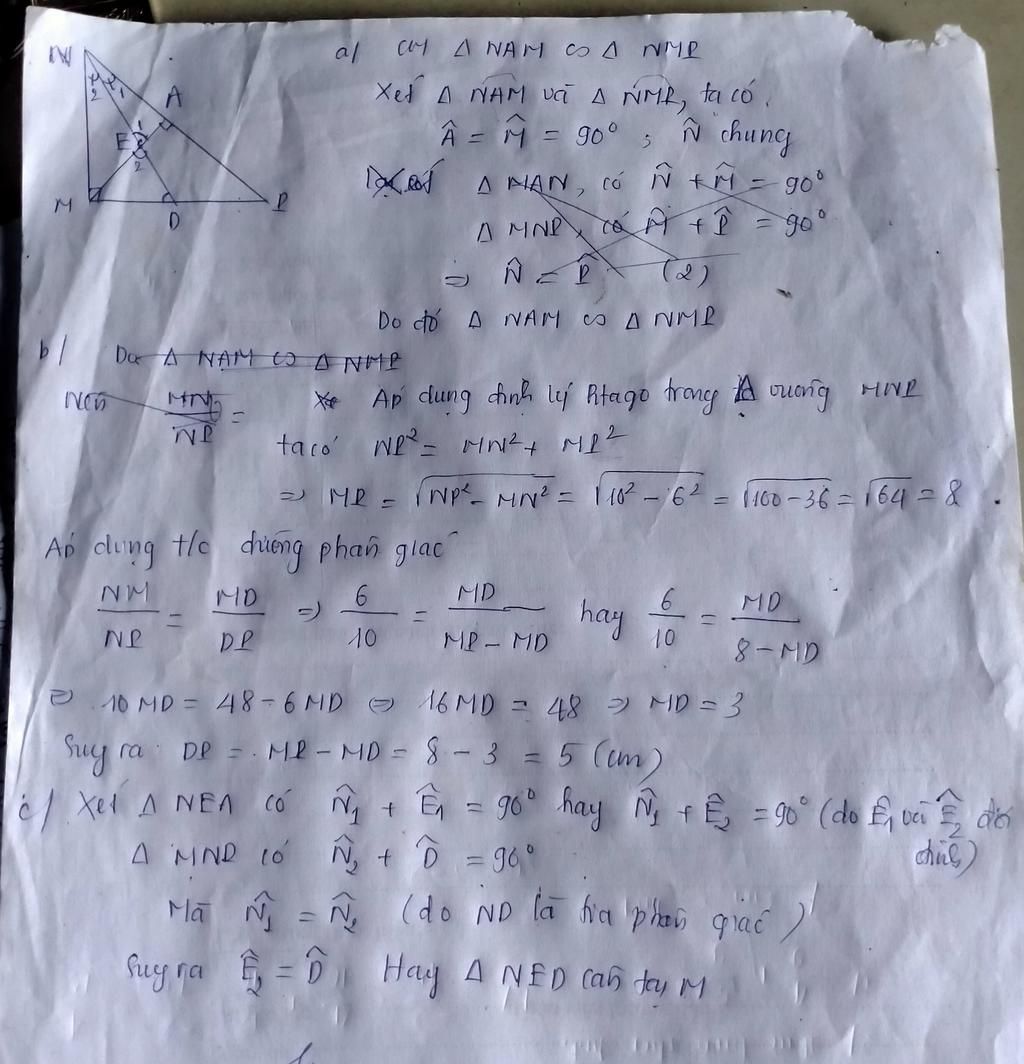 N
2 1
A
E 1
2
M
D
P
a/ CM Δ NAM ∽ Δ NMP
Xét Δ NAM và Δ NMP, ta có.
Â = M̂ = 90° ; N̂ chung
Δ MAN, có N̂ + M̂ = 90°
Δ MNP, có M̂ + P̂ = 90°
=> N̂ = P̂ (2)
Do đó Δ NAM ∽ Δ NMP
b/ Do Δ NAM ∽ Δ NMP
Nên MN/NP =
Áp dụng định lý Ptago trong Δ vuông MNP
ta có NP² = MN² + MP²
=> MP = √(NP² - MN²) = √(10² - 6²) = √(100 - 36) = √64 = 8
Áp dụng t/c đường phân giác
NM/NP = MD/DP => 6/10 = MD/(MP - MD) hay 6/10 = MD/(8 - MD)
=> 10MD = 48 - 6MD <=> 16MD = 48 => MD = 3
Suy ra DP = MP - MD = 8 - 3 = 5 (cm)
c/ Xét Δ NEA có N̂₁ + Ê₁ = 90° hay N̂₁ + Ê₂ = 90° (do Ê₁ và Ê₂ đối
đỉnh)
Δ MND có N̂₂ + D̂ = 90°
Mà N̂₁ = N̂₂ (do ND là tia phân giác)
Suy ra Ê₂ = D̂ Hay Δ NED cân tại M